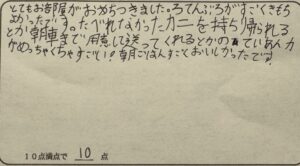 とてもお部屋がおちつきました。ろてんぶろがすごくきもち
よかったです。たべれなかったカニを持ち帰られる
とか朝車まで用意して送ってくれるとかの ていあん力
がめっちゃくちゃすごい！朝ごはんすごくおいしかったです。
10点満点で 10 点